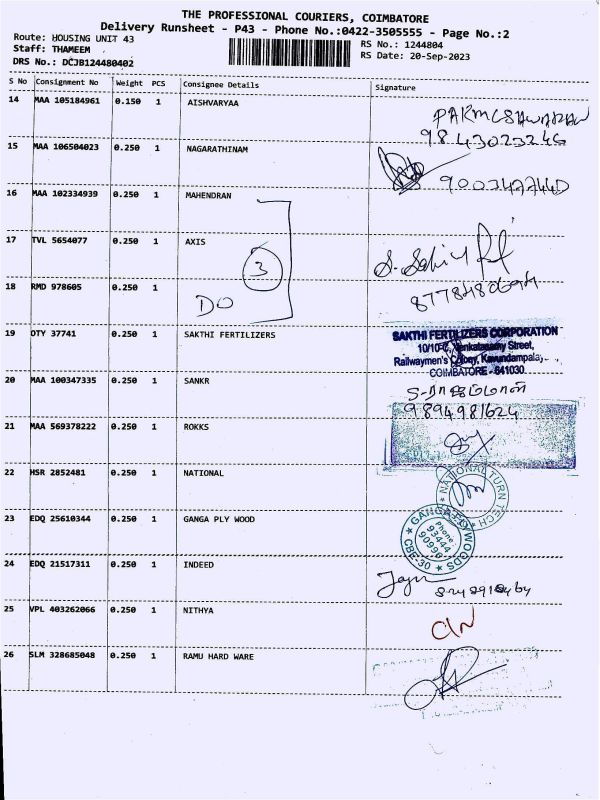 THE PROFESSIONAL COURIERS, COIMBATORE
Delivery Runsheet - P43 - Phone No.:0422-3505555 - Page No.:2
Route: HOUSING UNIT 43
Staff: THAMEEM
DRS No.: DCJB124480402
RS No.: 1244804
RS Date: 20-Sep-2023
S No Consignment No Weight PCS Consignee Details Signature
14 MAA 105184961 0.150 1 AISHVARYAA
9843023246
15 MAA 106504023 0.250 1 NAGARATHINAM
16 MAA 102334939 0.250 1 MAHENDRAN
17 TVL 5654077 0.250 1 AXIS
3
18 RMD 978605 0.250 1
DO
19 OTY 37741 0.250 1 SAKTHI FERTILIZERS
SAKTHI FERTILIZERS CORPORATION
10/10-C, Venkatasamy Street,
Railwaymen's Colony, Kavundampalay,
COIMBATORE - 641030
20 MAA 100347335 0.250 1 SANKR
9894981624
21 MAA 569378222 0.250 1 ROKKS
22 HSR 2852481 0.250 1 NATIONAL
NATIONAL TURN TECH
23 EDQ 25610344 0.250 1 GANGA PLY WOOD
GANGA PLYWOODS
Phone:
93444
90996
CBE-30
24 EDQ 21517311 0.250 1 INDEED
25 VPL 403262066 0.250 1 NITHYA
26 SLM 328685048 0.250 1 RAMU HARD WARE